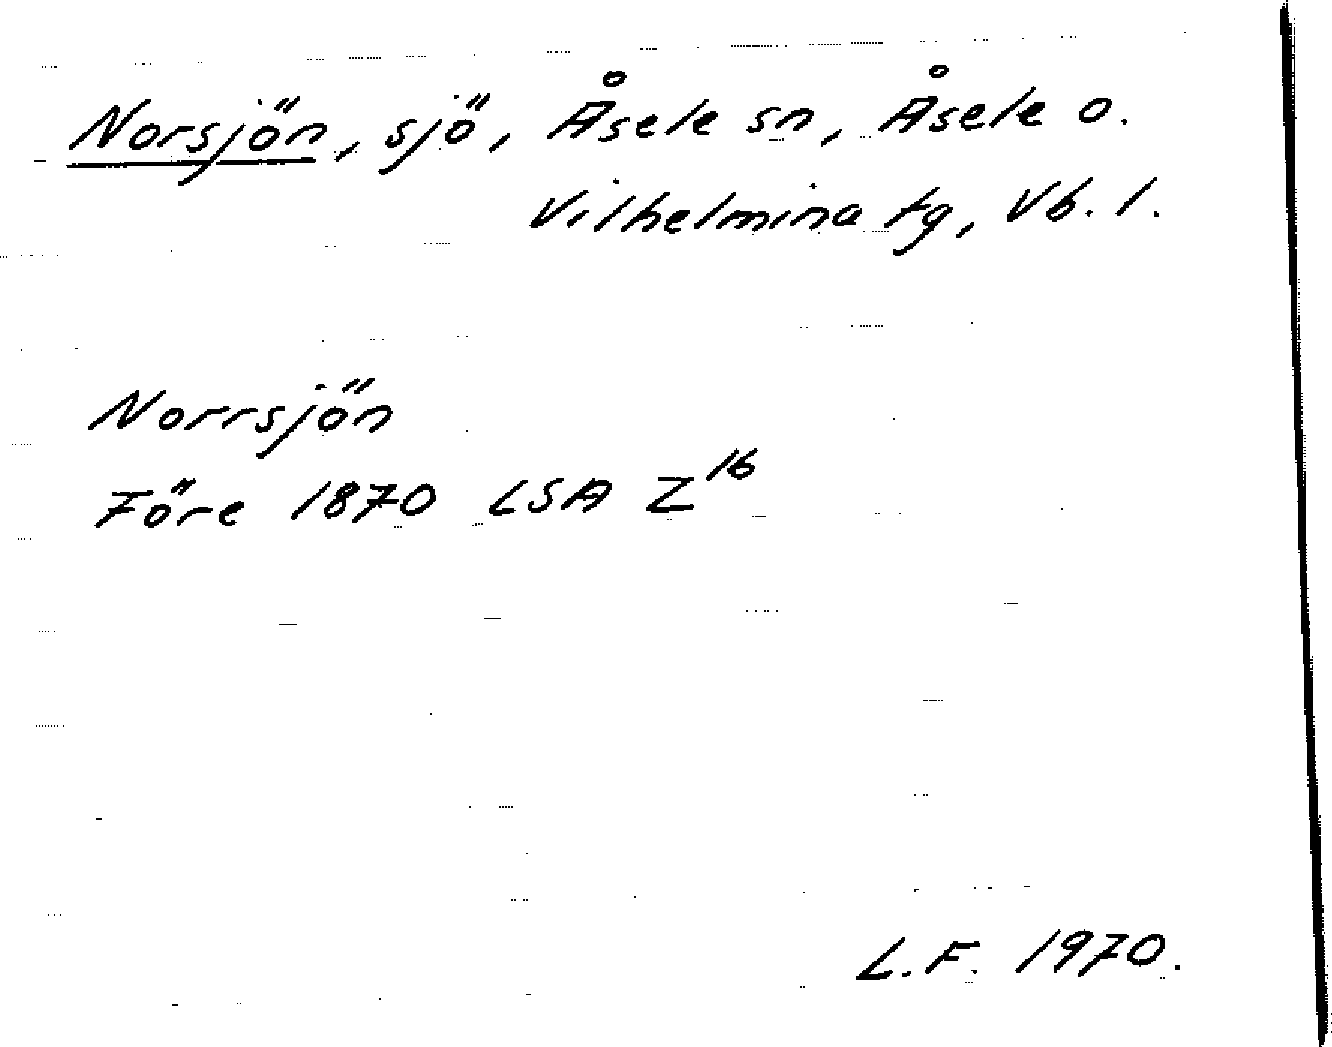 Norsjön, sjö, Åsele sn, Åsele o.
Vilhelmina tg, Vb. l.
Norrsjön
Före 1870 LSA Z¹⁶
L.F. 1970.